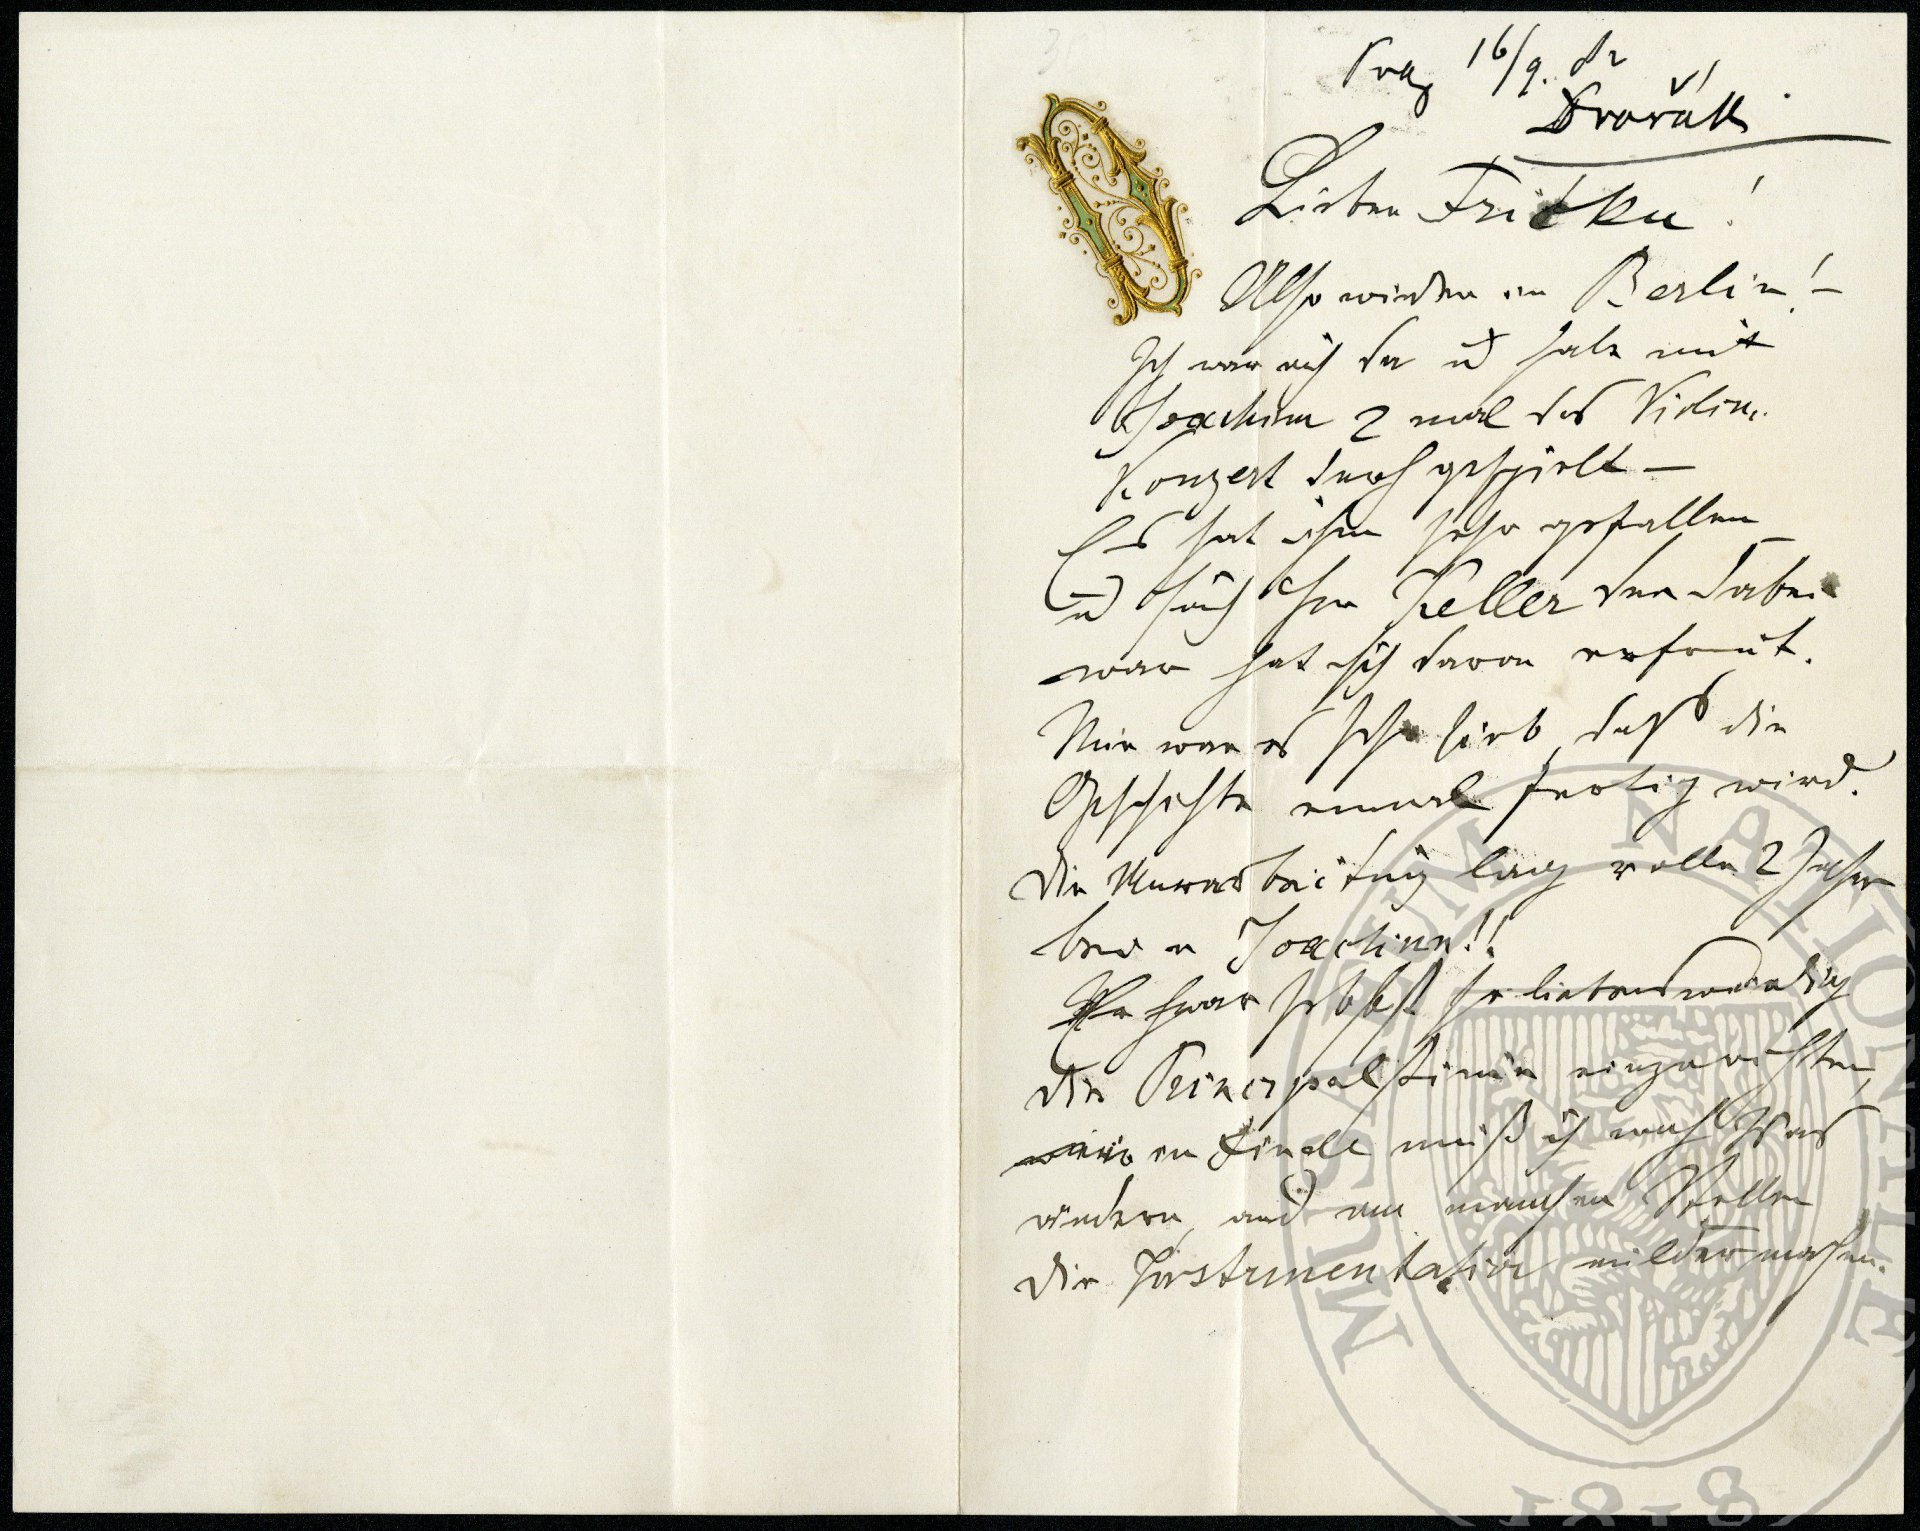 Prag 16/9. 82
Dvořák
Lieber Fritku!
Also wieder in Berlin! –
Ich war auch da ud habe mit
Joachim 2 mal das Violin-
Konzert durchgespielt –
Es hat ihm sehr gefallen
ud auch H Keller der dabei
war hat sich davon erfreut.
Mir war es sehr lieb, daß die
Geschichte einmal fertig wird.
die Umarbeitung lag volle 2 Jahre
bei Joachim!!
Er selbst so liebenswürdig
die Principalstimme einzurichten,
im Finale muß ich noch was
ändern, und an manchen Stellen
die Instrumentation milder machen.
MUSAEUM NATIONALE
1818